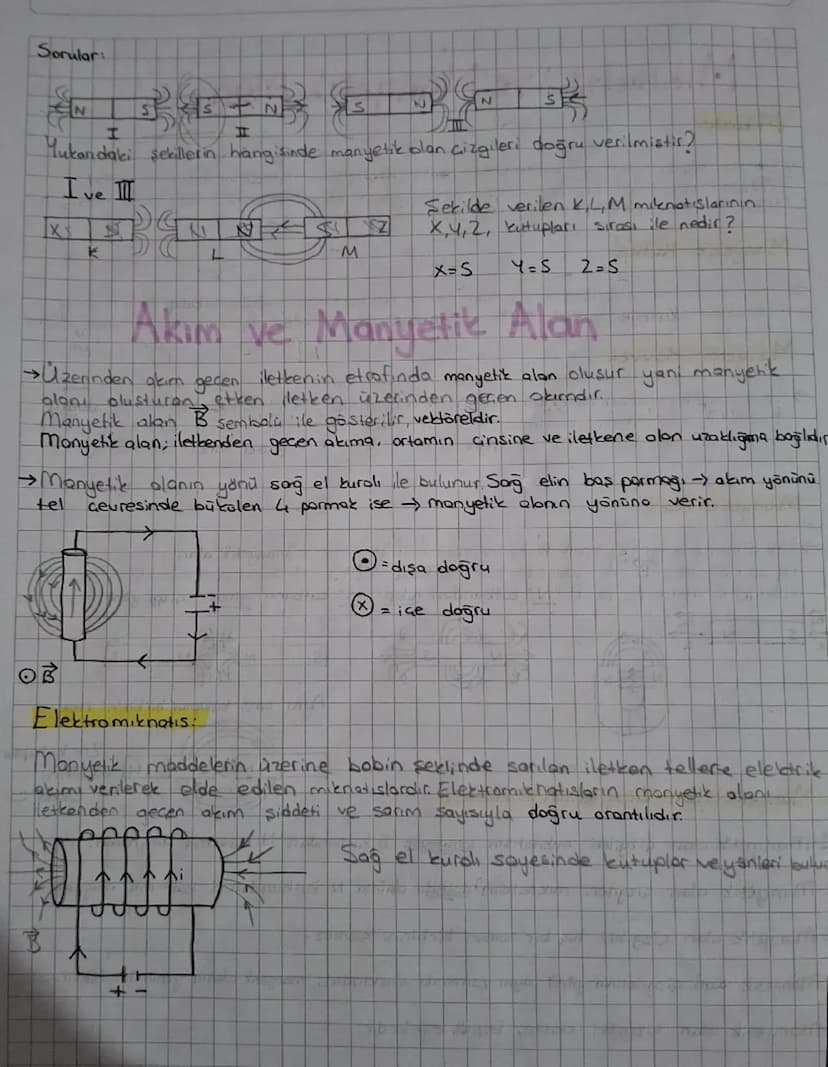 Sorular:
N S S N S N N S
I II III
Yukarıdaki şekillerin hangisinde manyetik alan çizgileri doğru verilmiştir?
I ve III
Şekilde verilen K, L, M mıknatıslarının
X, Y, Z, kutupları sırası ile nedir?
K L M
X=S Y=S Z=S
Akım ve Manyetik Alan
→Üzerinden akım geçen iletkenin etrafında manyetik alan oluşur yani manyetik
alanı oluşturan etken iletken üzerinden geçen akımdır.
Manyetik alan B sembolü ile gösterilir, vektöreldir.
Manyetik alan; iletkenden geçen akıma, ortamın cinsine ve iletkene olan uzaklığına bağlıdır
→Manyetik alanın yönü sağ el kuralı ile bulunur. Sağ elin baş parmağı → akım yönünü
tel çevresinde bükülen 4 parmak ise → manyetik alanın yönünü verir.
⊙=dışa doğru
⊗ = içe doğru
+
⊙ B
Elektromıknatıs:
Manyetik maddelerin üzerine bobin şeklinde sarılan iletken tellere elektrik
akımı verilerek elde edilen mıknatıslardır. Elektromıknatısların manyetik alanı
iletkenden geçen akım şiddeti ve sarım sayısıyla doğru orantılıdır.
Sağ el kuralı sayesinde kutuplar ve yönleri bulu
i
B
+ -